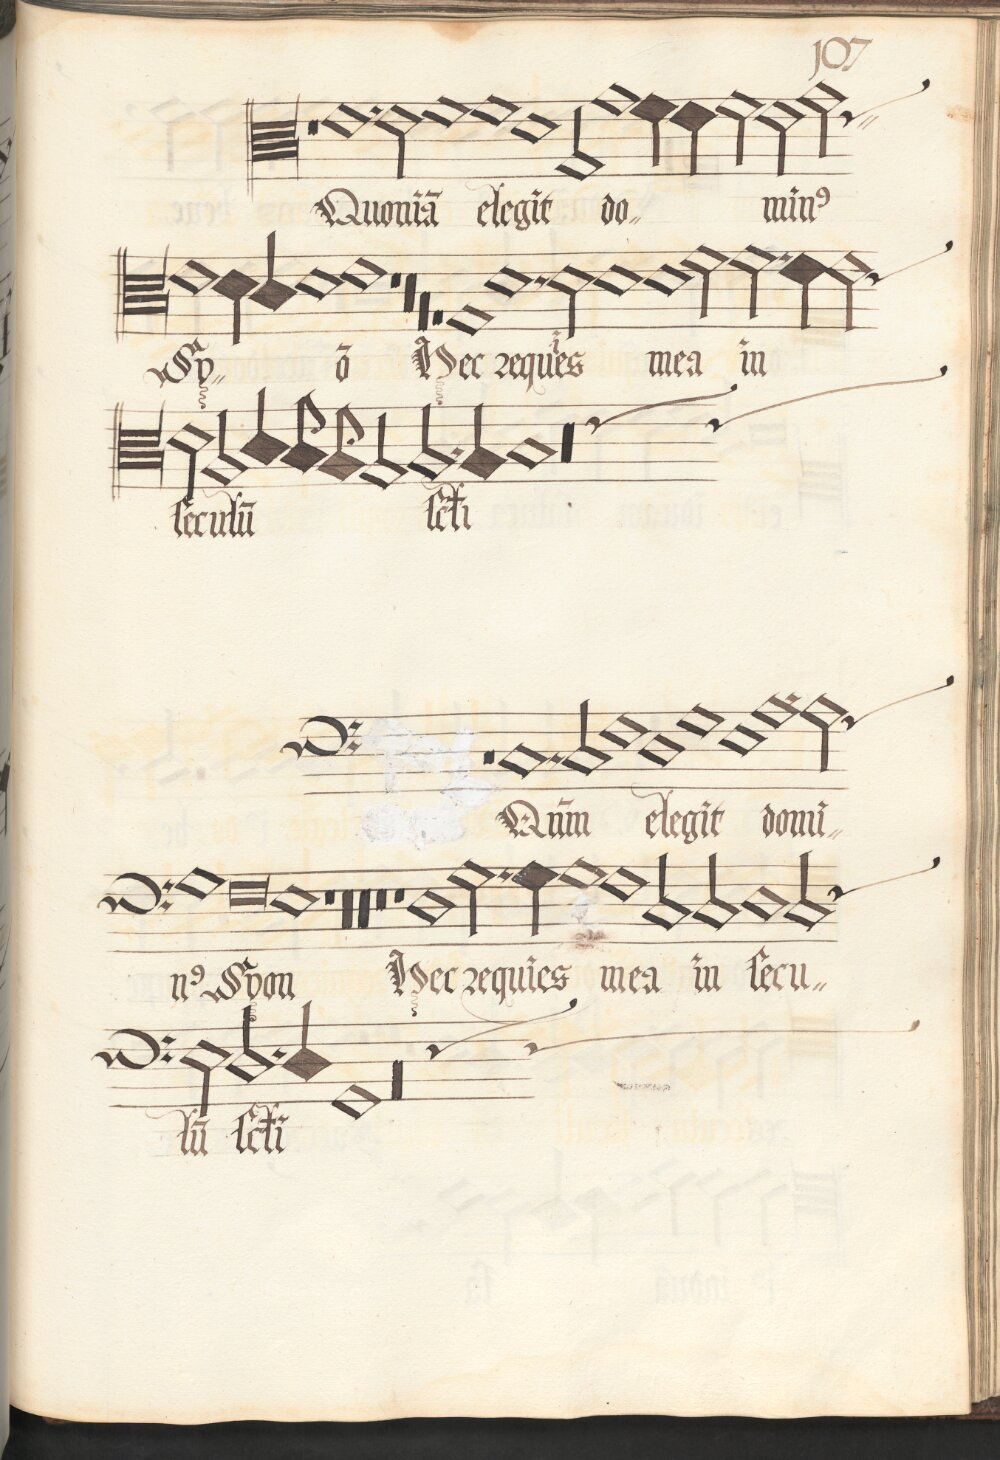 107
Quoniā elegit do〃 minꝰ
Sy〃 ō Hec requies mea in
seculū scłi
Qūm elegit domi〃
nꝰ Syon Hec requies mea in secu〃
lū scłi